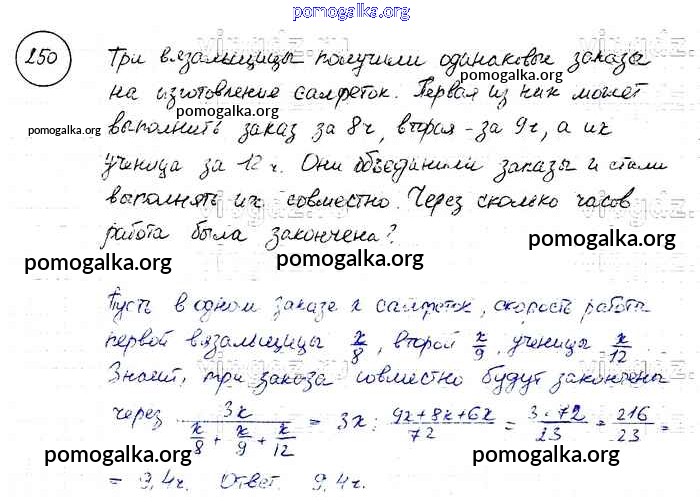 pomogalka.org
250
Три вязальщицы получили одинаковые заказы
pomogalka.org
на изготовление салфеток. Первая из них может
pomogalka.org
выполнить заказ за 8 ч, вторая - за 9 ч, а их
pomogalka.org
ученица за 12 ч. Они объединили заказы и стали
выполнять их совместно. Через сколько часов
работа была закончена?
pomogalka.org
pomogalka.org
pomogalka.org
Пусть в одном заказе x салфеток, скорость работы
первой вязальщицы x/8, второй x/9, ученицы x/12.
Значит, три заказа совместно будут закончены
через 3x / (x/8 + x/9 + x/12) = 3x : (9x+8x+6x)/72 = 3·72/23 = 216/23 =
= 9,4 ч. Ответ. 9,4 ч.
pomogalka.org
pomogalka.org
pomogalka.org